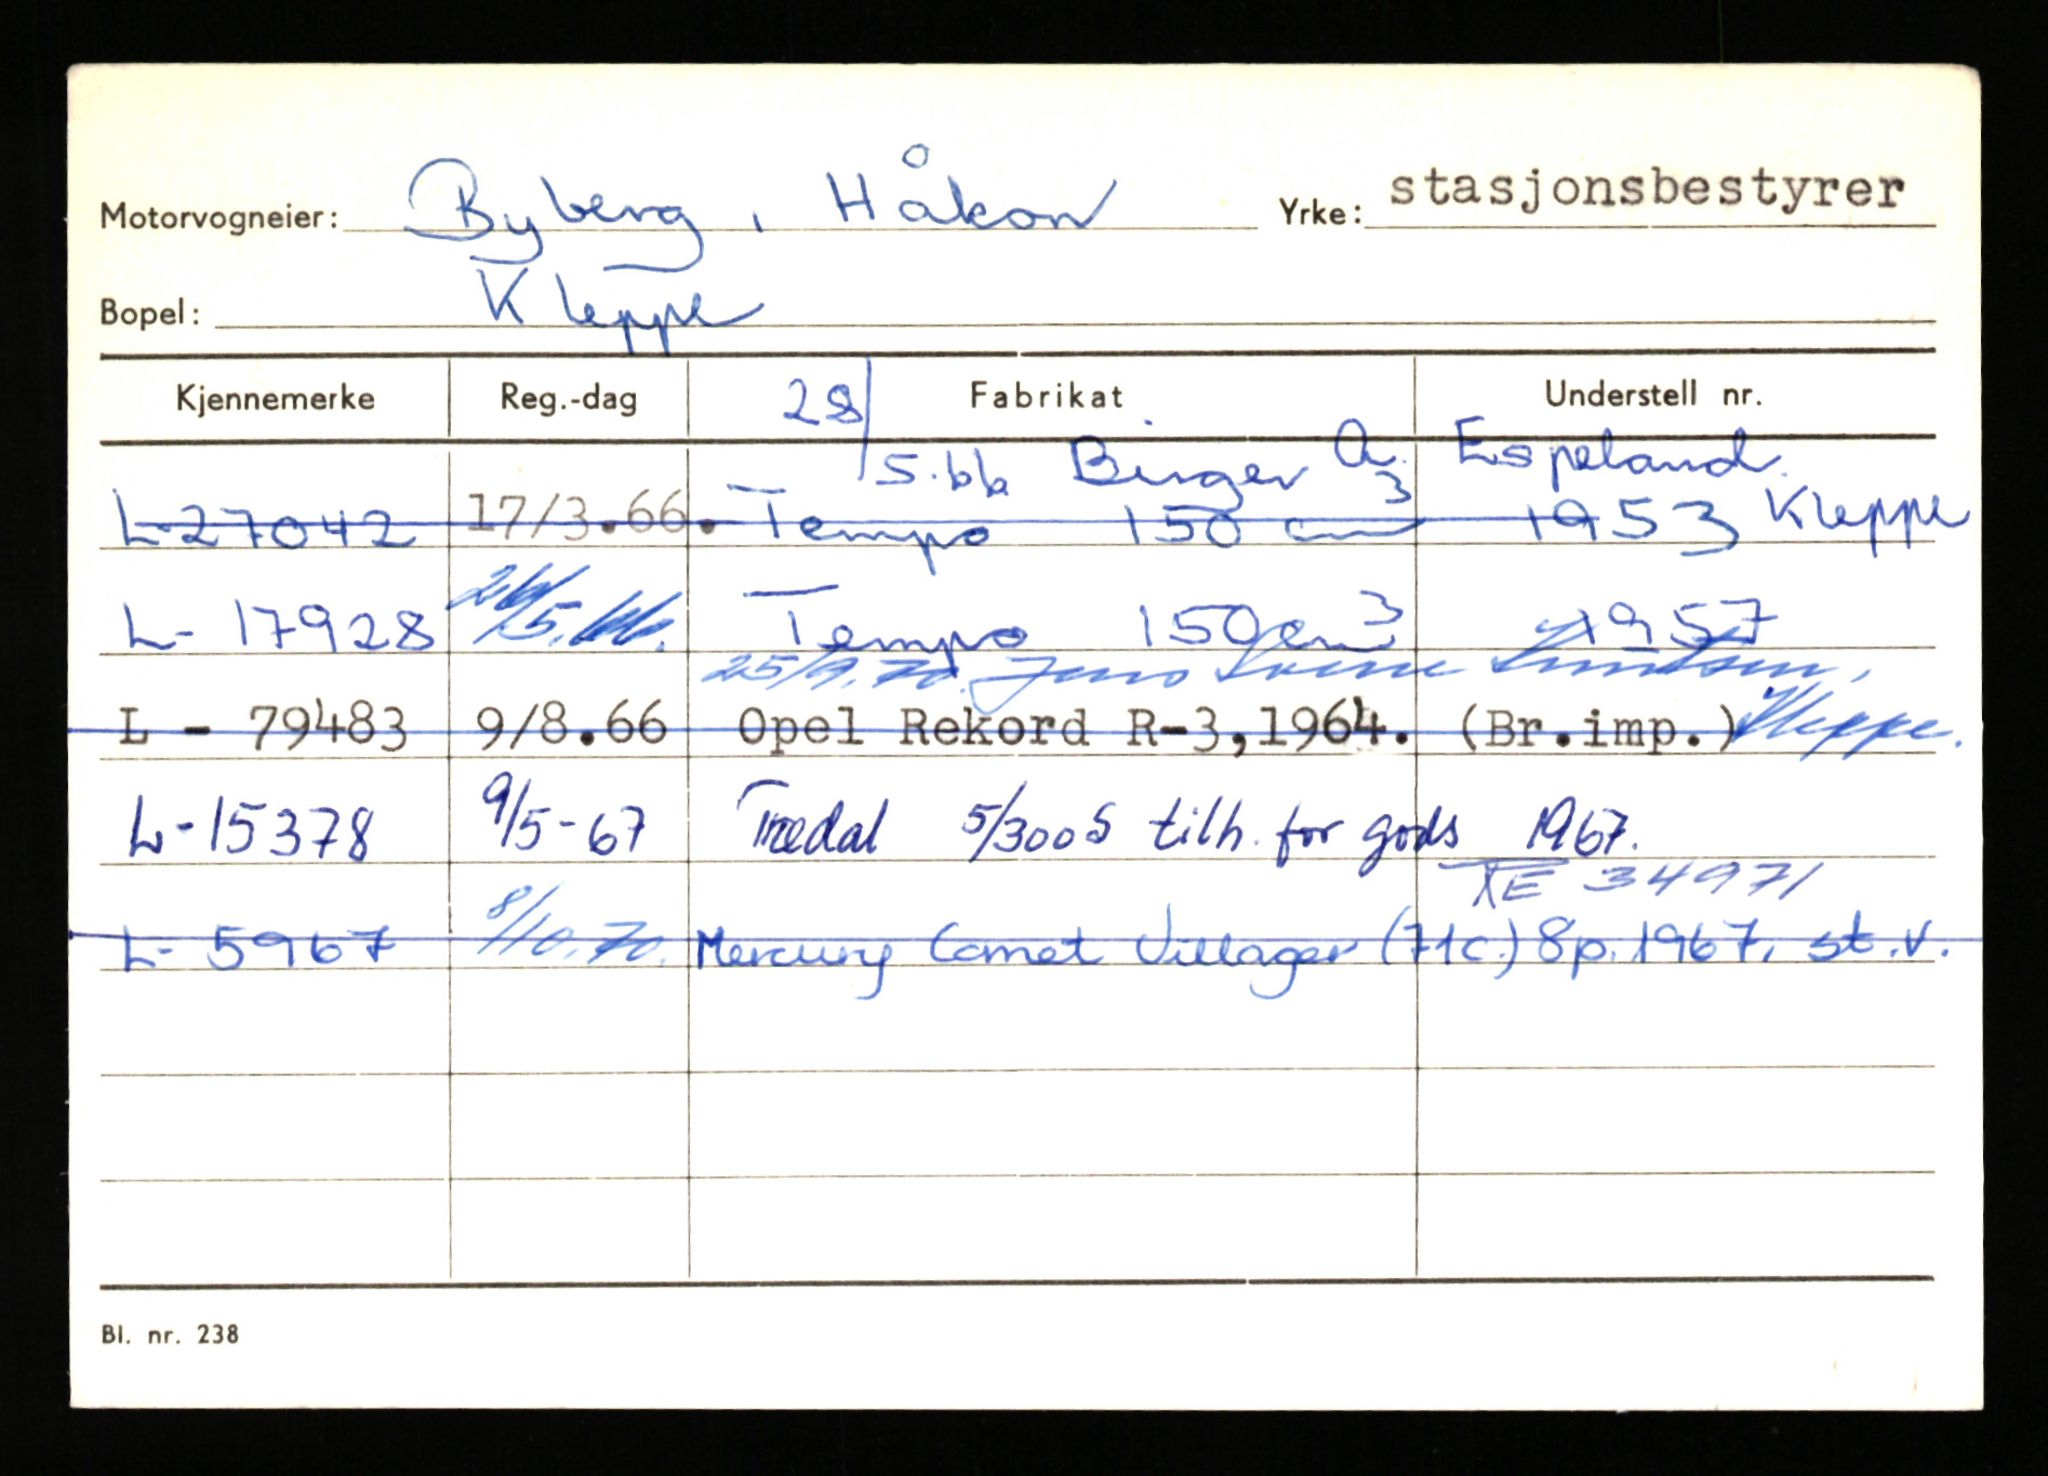 Motorvogneier: Byberg, Håkon Yrke: stasjonsbestyrer
Bopel: Kleppe
Kjennemerke Reg.-dag Fabrikat Understell nr.
28/5.66 Birger A. Espeland Kleppe
L-27042 17/3.66. Tempo 150 cm3 1953
L- 17928 26/5.66. Tempo 150 cm3 1957
25/9.70. Jens Kleppe.
L - 79483 9/8.66 Opel Rekord R-3,1964. (Br.imp.)
L-15378 9/5-67 Trædal 5/300S tilh. for gods 1967.
XE 34971
L- 5967 8/10.70. Mercury Comet Villager (71c.) 8p. 1967. st.v.
Bl. nr. 238